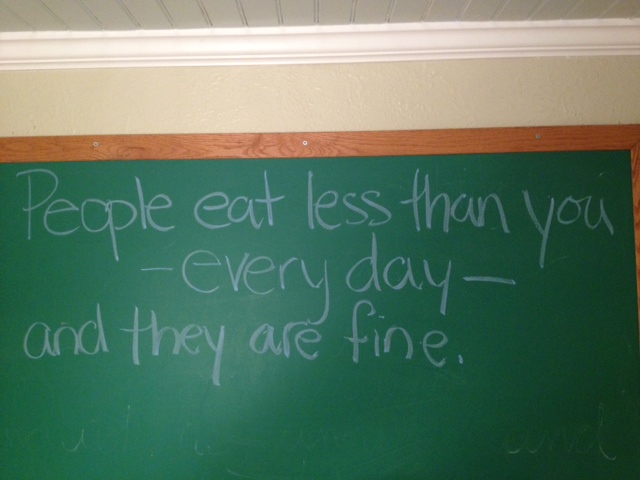 People eat less than you
-every day-
and they are fine.